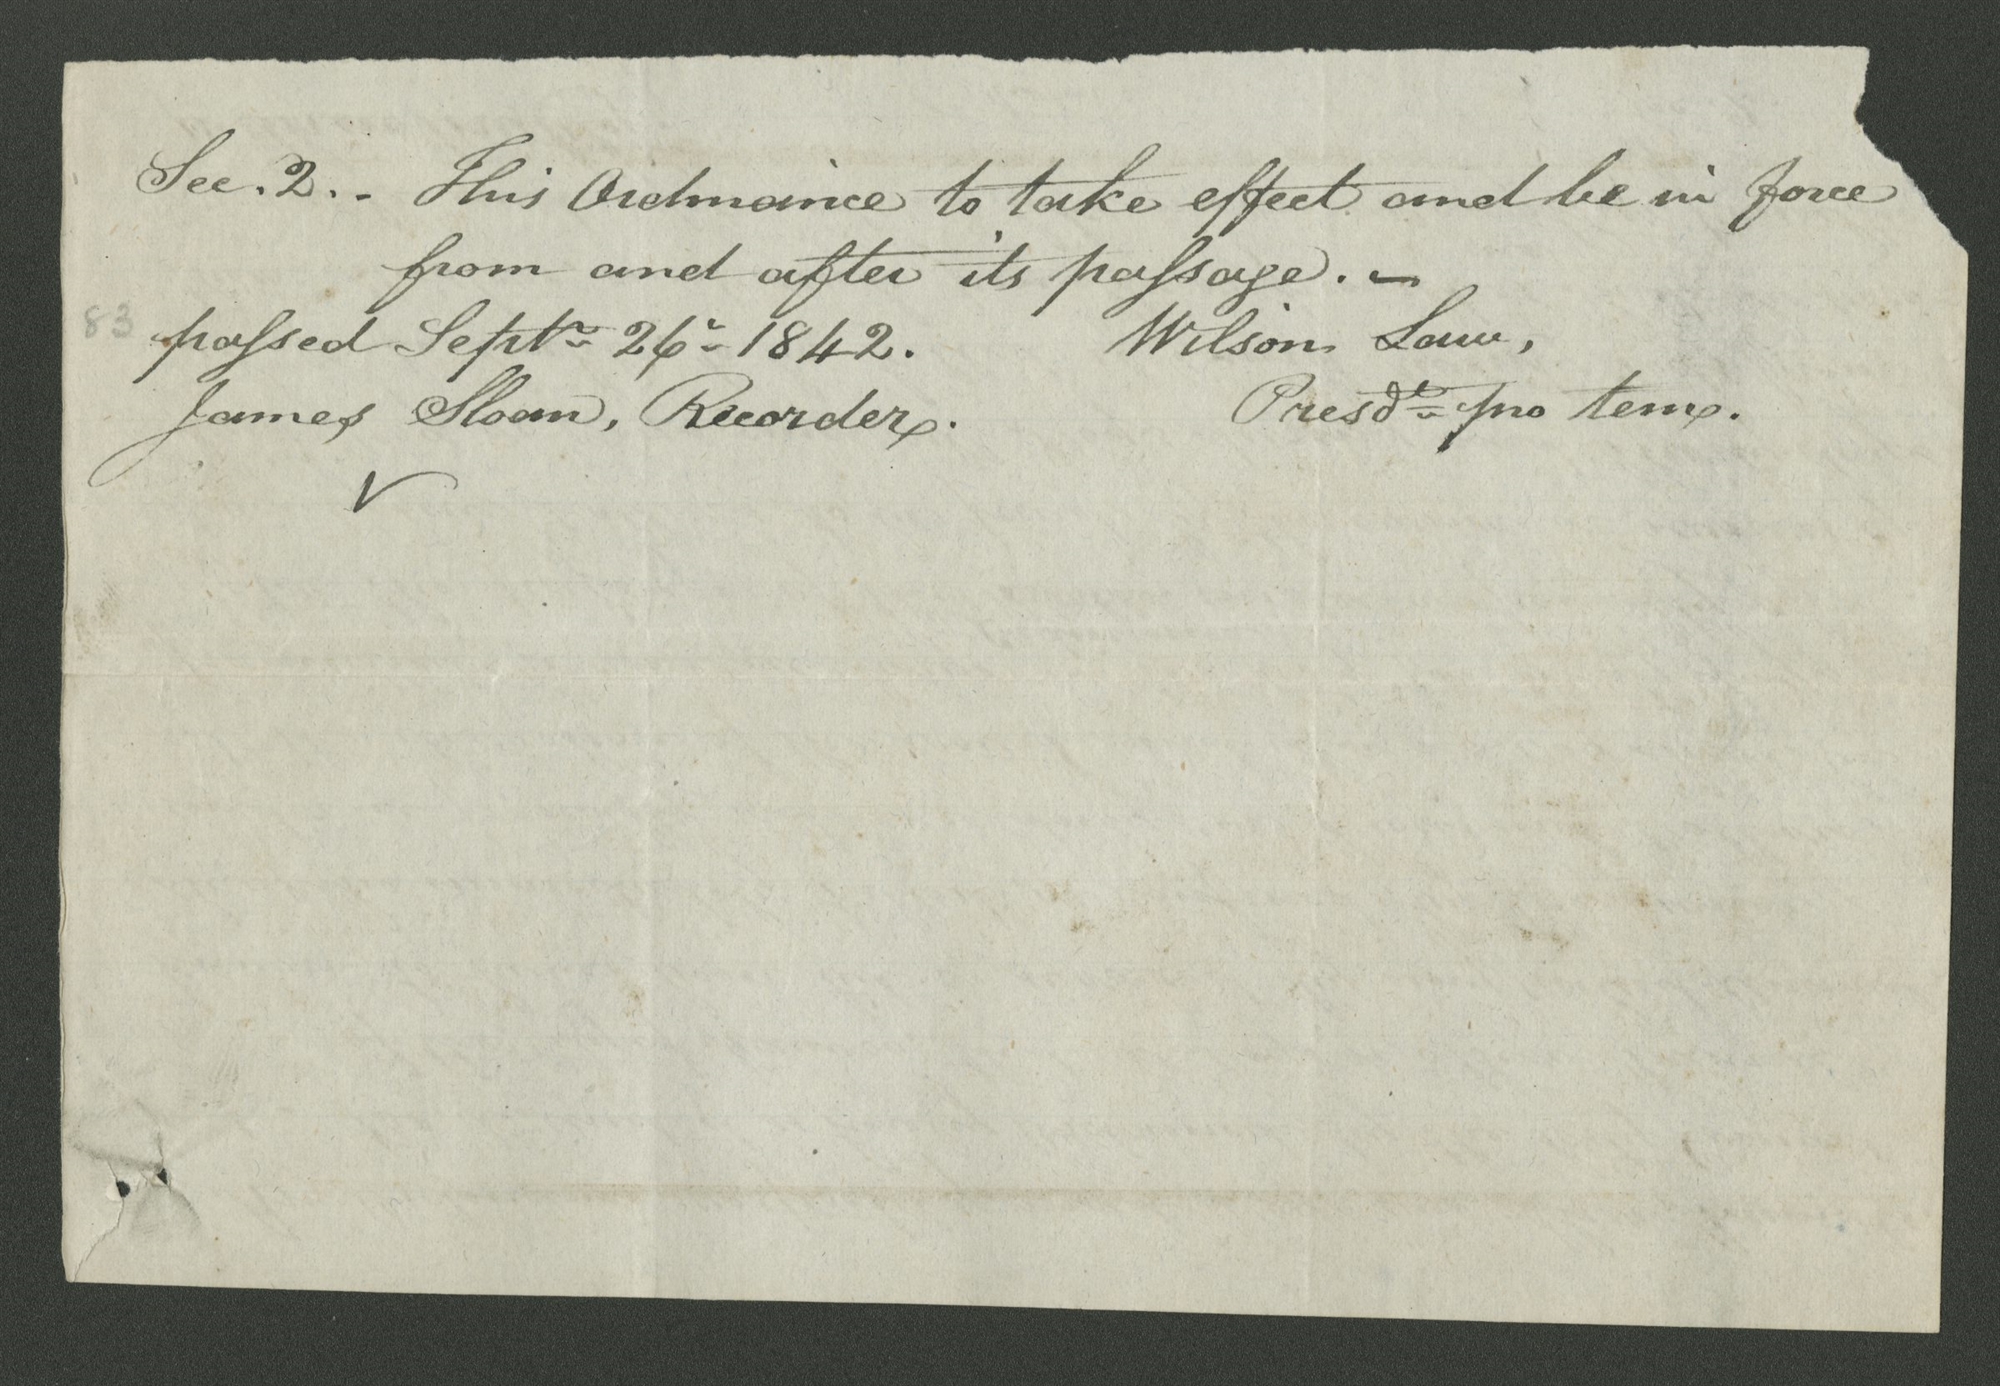 Sec. 2. - This Ordinance to take effect and be in force
from and after its passage. -
83 passed Septr. 26- 1842. Wilson Law,
James Sloan, Recorder. Presdt. pro tem.